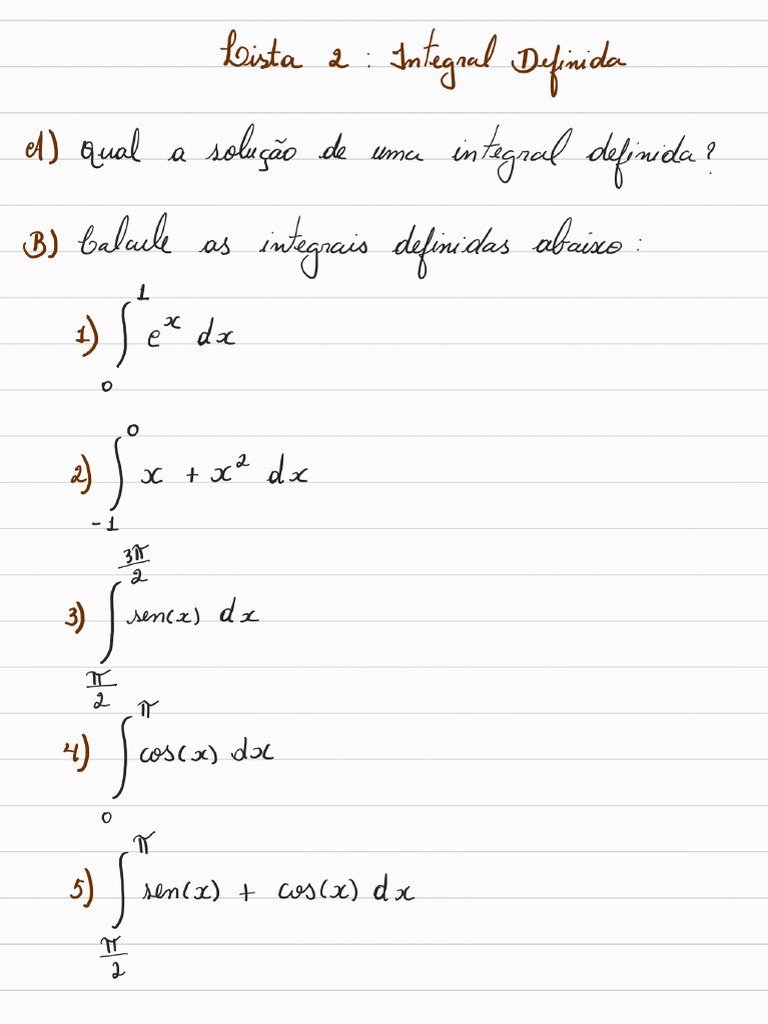 Lista 2 : Integral Definida
A) Qual a solução de uma integral definida?
B) Calcule as integrais definidas abaixo :
1) ∫₀¹ eˣ dx
2) ∫₋₁⁰ x + x² dx
3) ∫_{π/2}^{3π/2} sen(x) dx
4) ∫₀^π cos(x) dx
5) ∫_{π/2}^π sen(x) + cos(x) dx